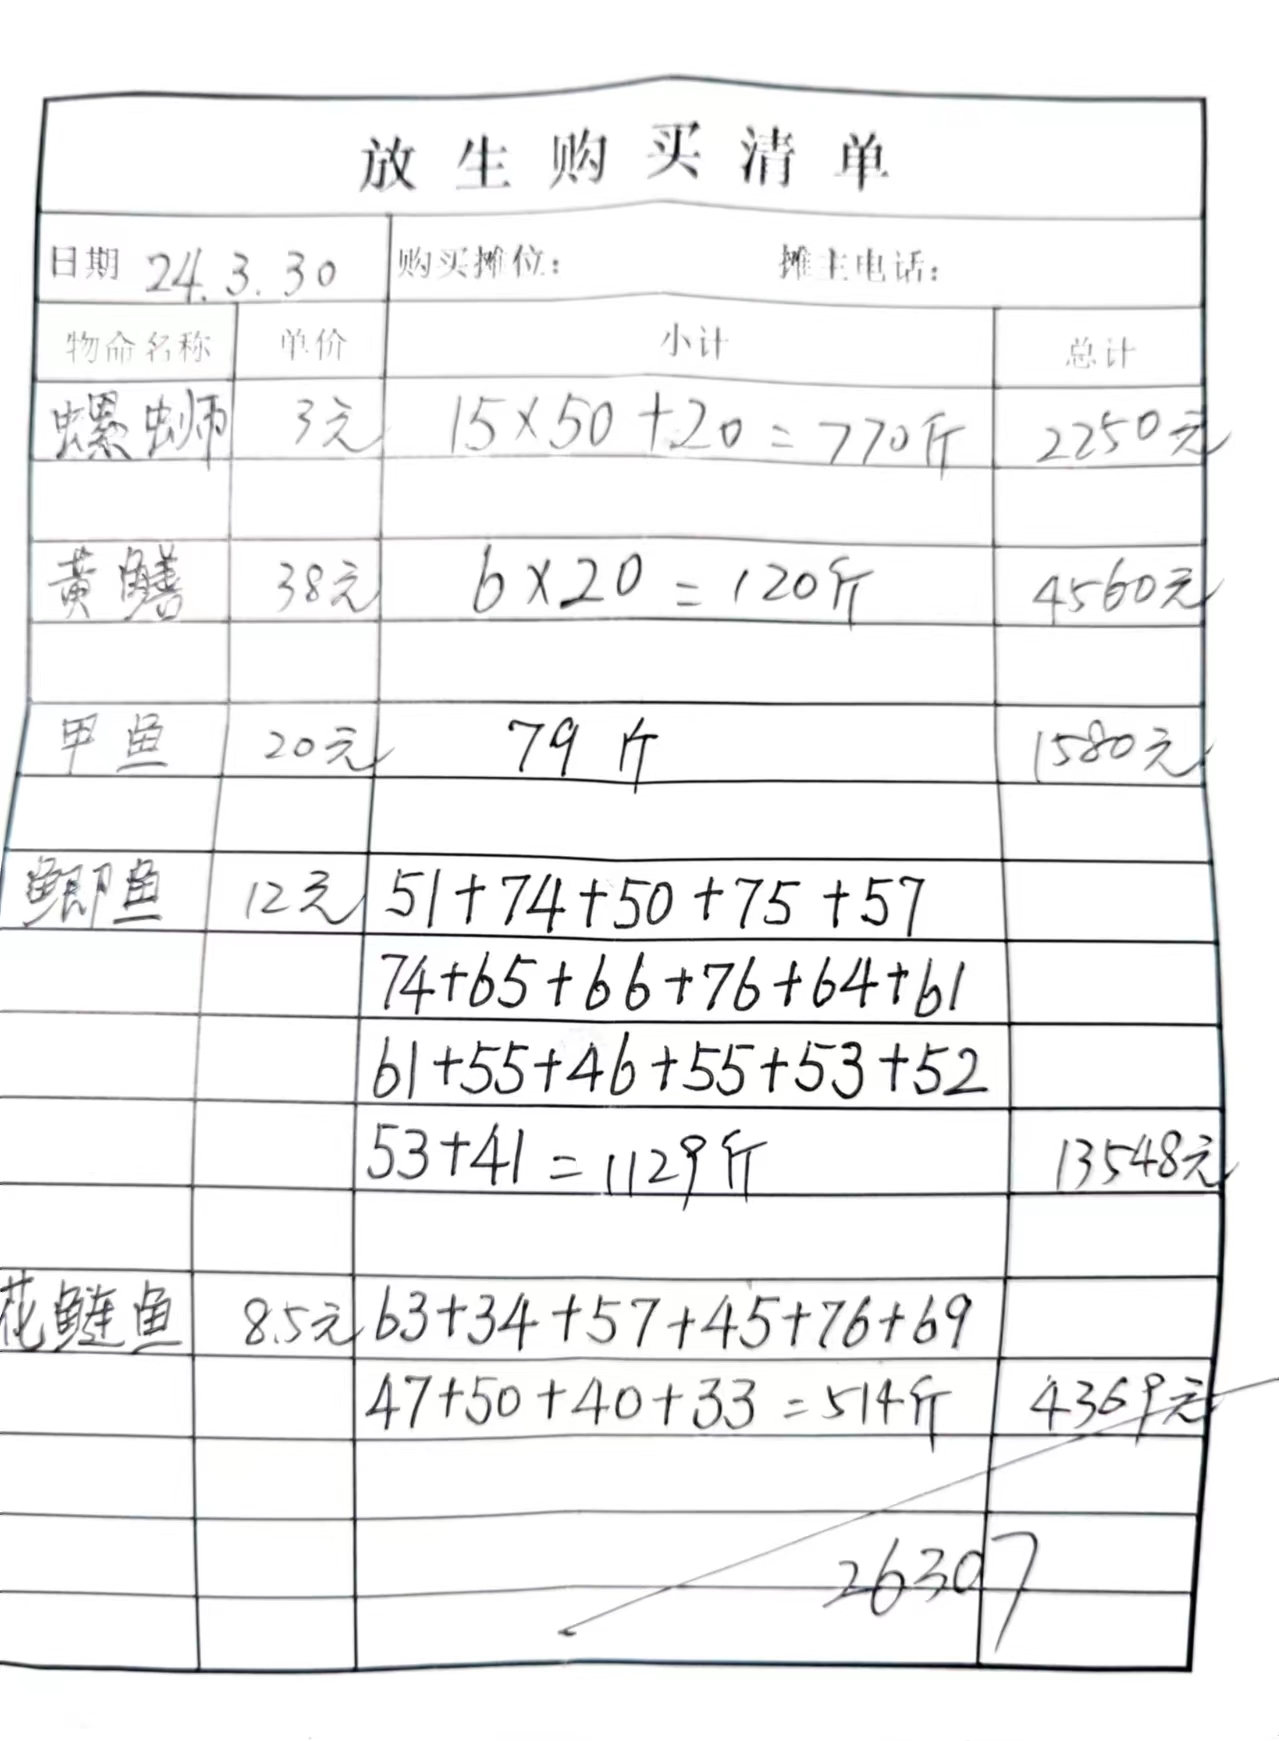 放生购买清单
日期 24.3.30 购买摊位： 摊主电话：
物命名称 单价 小计 总计
螺蛳 3元 15×50+20=770斤 2250元
黄鳝 38元 6×20=120斤 4560元
甲鱼 20元 79斤 1580元
鲫鱼 12元 51+74+50+75+57
74+65+66+76+64+61
61+55+46+55+53+52
53+41=1129斤 13548元
花鲢鱼 8.5元 63+34+57+45+76+69
47+50+40+33=514斤 4369元
26307